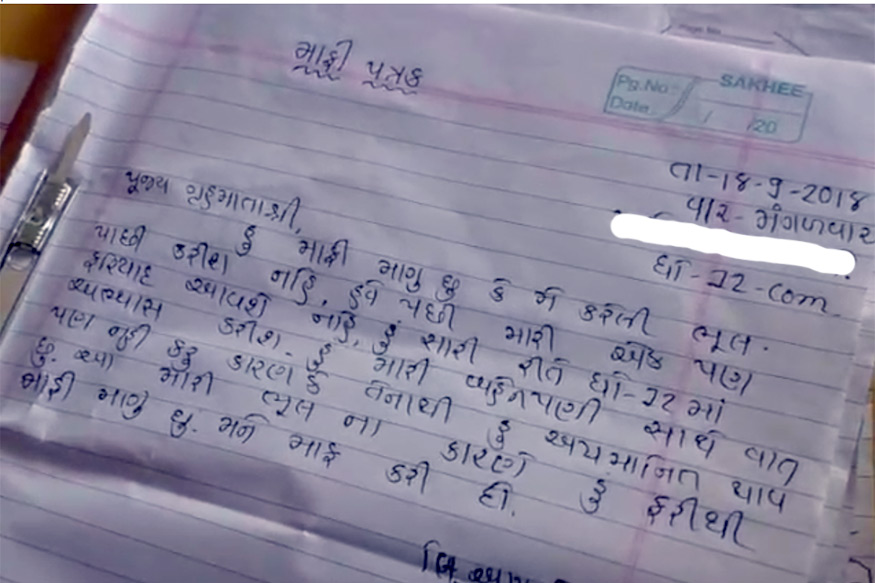 માફી પત્રક
Pg.No.
SAKHEE
Date / /20
તા-18-9-2018
વાર-મંગળવાર
ધો-12-com
પૂજ્ય ગૃહમાતાશ્રી,
હું માફી માગુ છુ કે મેં કરેલી ભૂલ.
પાછી કરીશ નહિ, હવે પછી મારી એક પણ
ફરિયાદ આવશે નહિ, હું સારી રીતે ધો-12 માં
અભ્યાસ કરીશ. હું મારી બહેનપણી સાથે વાત
પણ નહી કરૂ કારણ કે તેનાથી હું અપમાનિત થાવ
છુ. આ મારી ભૂલ ના કારણે હું ફરીથી
માફી માગુ છુ. મને માફ કરી દો.
લિ.